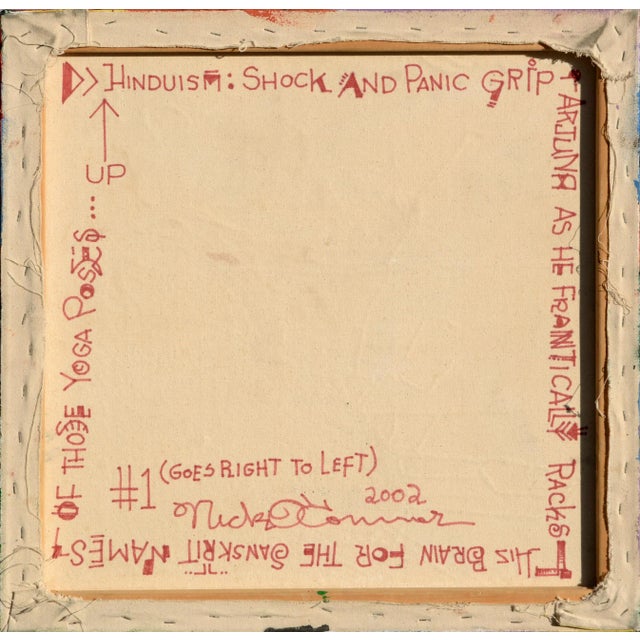 HINDUISM: SHOCK AND PANIC GRIP
ARJUNA AS HE FRANTICALLY RACKS
HIS BRAIN FOR THE SANSKRIT NAMES
OF THOSE YOGA POSES...
UP
#1 (GOES RIGHT TO LEFT)
Nick O'Connor 2002